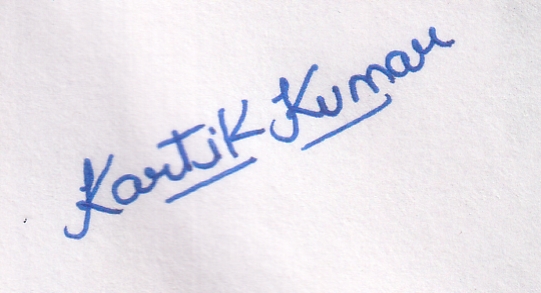 Kartik Kumar